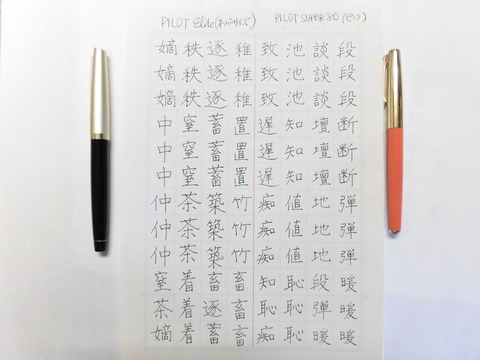 PILOT Elite(オーバーサイズ)
PILOT SUPER 80 (ピンク)
段段段断断断弾弾弾暖暖暖
談談談壇壇壇地地地段弾暖
池池池知知知値値値恥恥恥
致致致遅遅遅痴痴痴知恥痴
稚稚稚置置置竹竹竹畜畜畜
逐逐逐蓄蓄蓄築築築畜逐蓄
秩秩秩窒窒窒茶茶茶着着着
嫡嫡嫡中中中仲仲仲窒茶嫡